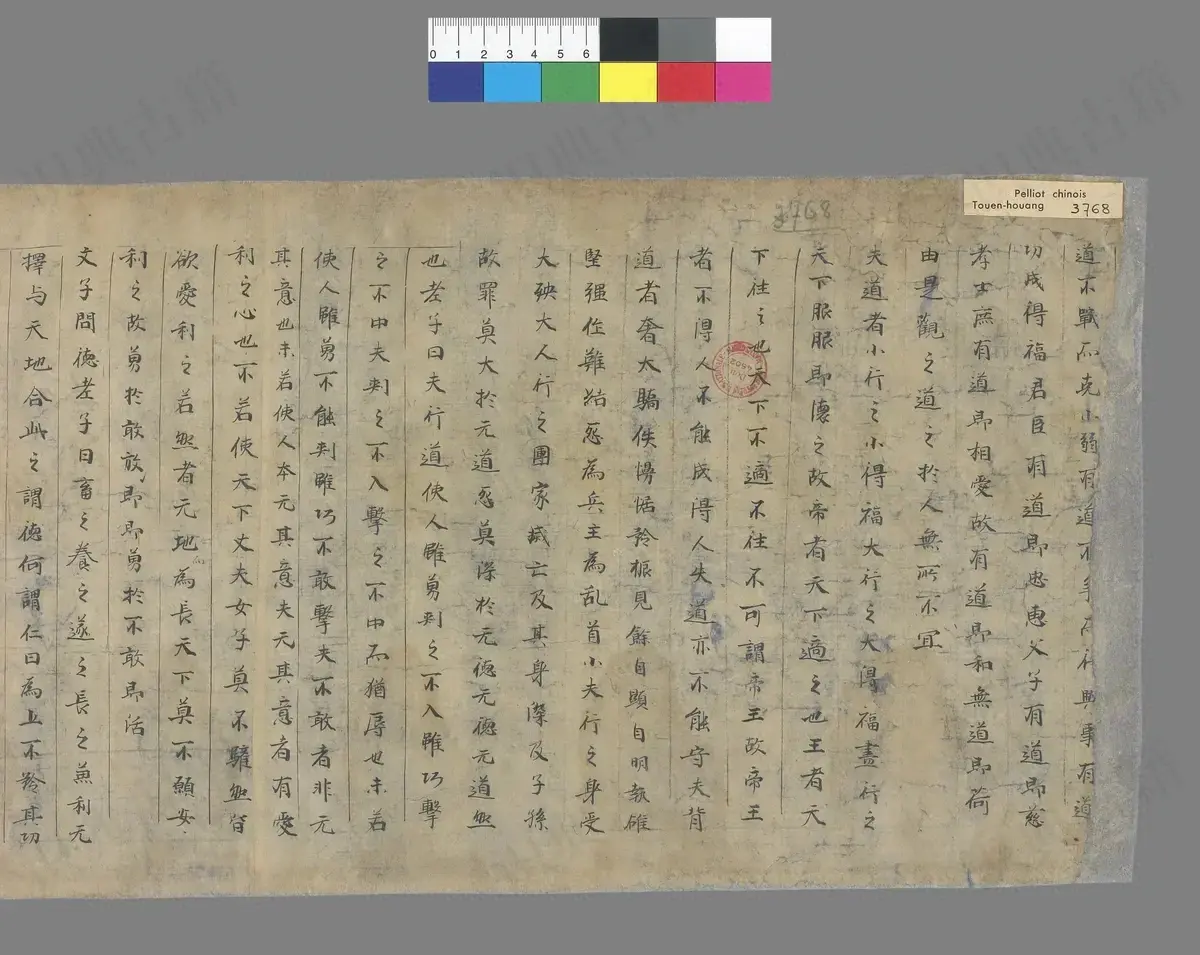 0 1 2 3 4 5 6
Pelliot chinois
Touen-houang 3768
3768
道不戰而克小弱有道不爭而得興事有道
功成得福君臣有道即忠惠父子有道即慈
孝士庶有道即相愛故有道即和無道即荷
由是觀之道之於人無所不宜
夫道者小行之小得福大行之大得福盡行之
天下服服即懷之故帝者天下適之也王者天
下往之也天下不適不往不可謂帝王故帝王
者不得人不能成得人失道亦不能守夫背
道者奢大驕佚慢倨矜振見餘自顯自明執雄
堅强作難結怨為兵主為乱首小夫行之身受
大殃大人行之國家滅亡及其身深及子孫
故罪莫大於无道怨莫深於无德无德无道然
也孝子曰夫行道使人雖勇刾之不入雖巧擊
之不中夫刾之不入擊之不中而猶辱也未若
使人雖勇不能刾雖巧不敢擊夫不敢者非无
其意也未若使人本无其意夫无其意者有愛
利之心也不若使天下丈夫女子莫不驩然皆
欲愛利之若然者无地為長天下莫不願安
利之故勇於敢敢即即勇於不敢即活
文子問德孝子曰畜之養之遂之長之兼利无
擇与天地合此之謂德何謂仁曰為上不矜其功